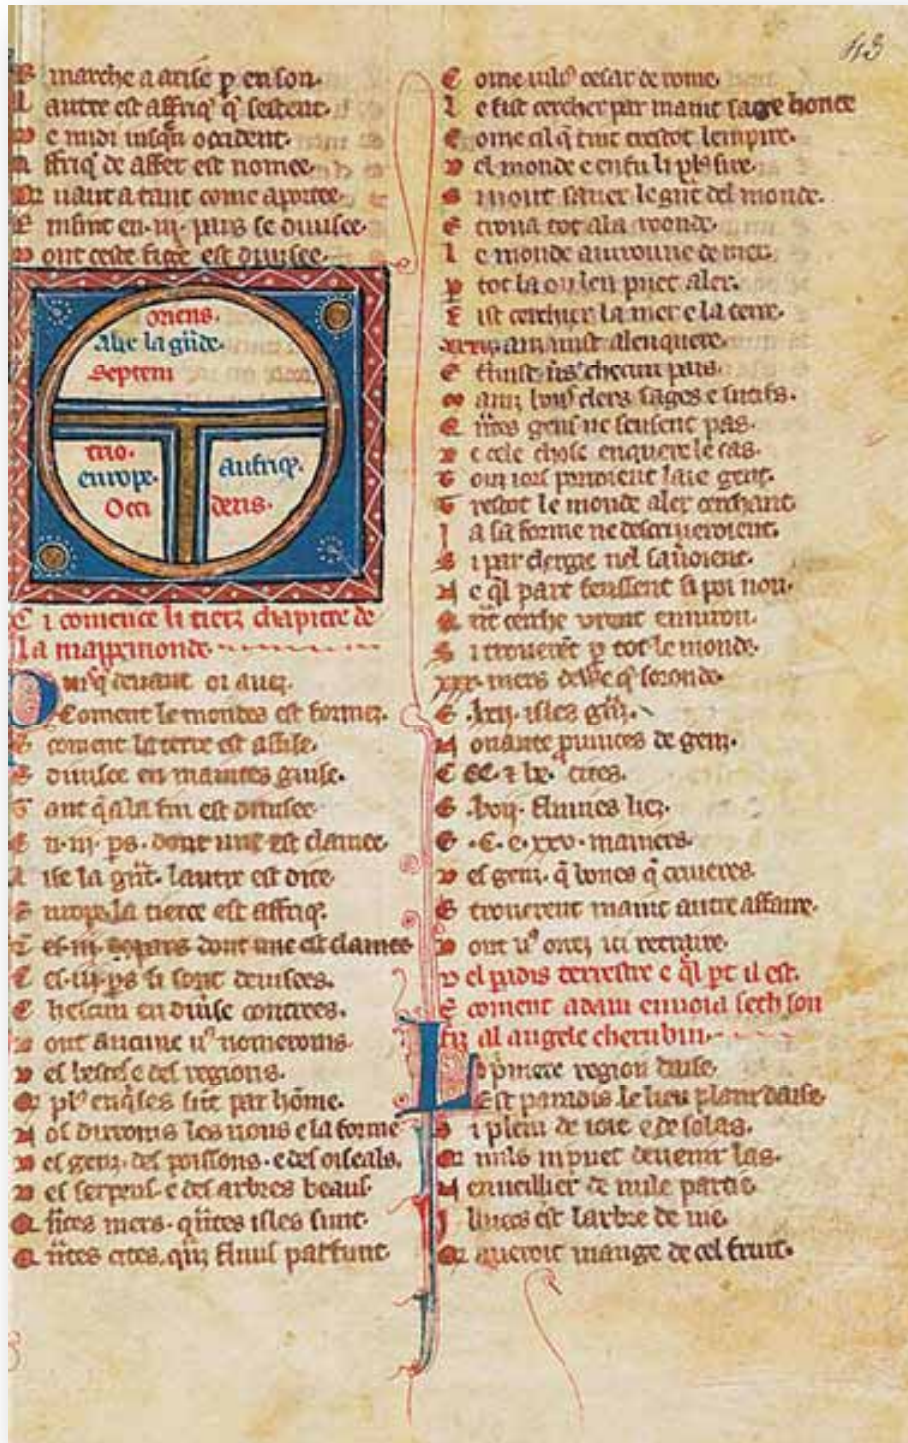 43
marche a arise p en son.
autre est affriq q sestent.
e midi iusqu occident.
A ffriq de affer est nomee
uaut a tant come aportee.
E nsint en .iij. pars se diuisee.
D ont ceste fige est diuisee.
oriens.
Asie la gnde.
Septem
trio.
europe.
Aufriq.
Occi dens.
C i comence li tierz chapitre de
la mapemonde
deuant oi auez.
Coment le mondes est formez.
E coment la terre est assise.
E diuisee en maintes guise.
T ant q a la fin est diuisee
E n .iij. ps. dont une est clamee
A sie la gnt. lautre est dite
E urope. la tierce est affriq.
T es .iij. pars dont une est clames
C es .iij. ps si sont deuisees.
C hescun en diuse contrees.
D ont aucune us nomeroms.
D es bestes e des regions.
pls enqises sunt par home.
N os diroms les nons e la forme
D es genz. des poissons. e des oiseals.
D es serpens. e des arbres beaus.
Q ntes mers. qntes isles sunt.
Q ntes cites. qnz fluus parfunt
C ome iulius cesar de rome.
L e fist cercher par maint sage honte
C ome cil q tint trestot lempire.
D el monde e en fu li pls sire.
mout sauer le gnt del monde.
E troua tot a la ronde.
L e monde auironne de mer.
P tot la ou len puet aler.
F ist cercher la mer e la terre.
amainst alenquere.
E chescun pais.
clers sages e sutifs.
Q ntes gens ne seusent pas.
D e cele chose enquere le cas.
laie gent.
T restot le monde aler cerchant
I a sa forme ne descriueroient.
S i par clergie nel sauoient.
N e ql part feussent si poi non.
Q nt cerche uront enuiron.
S i trouerent p tot le monde.
xxx. mers
E .lxii. isles gnz.
N onante puinces de genz.
C CC. z lx. cites.
E .lvij. fluuies liez.
E .C. e. xxv. maners.
D es genz. q bones q
E trouerent maint autre affaire.
D ont us orrez ici retraire.
D el pidis terrestre e ql pt il est.
E coment adam enuoia seth son
fiz al angele cherubin.
L a pmere region dasie.
Est paradis le lieu plant daise.
S i plein de ioie e de solas.
Q nuls ni puet deuenir las.
N enueillier de nule partie.
I lluecs est larbre de uie.
Q aueroit mange de cel fruit.